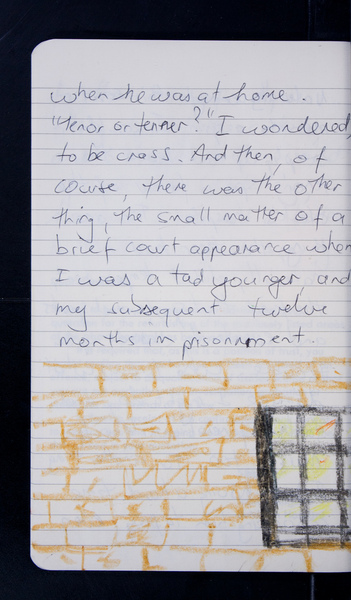 when he was at home.
"Tenor or tenner?" I wondered,
to be cross. And then, of
course, there was the other
thing, the small matter of a
brief court appearance when
I was a tad younger, and
my subsequent twelve
months imprisonment.